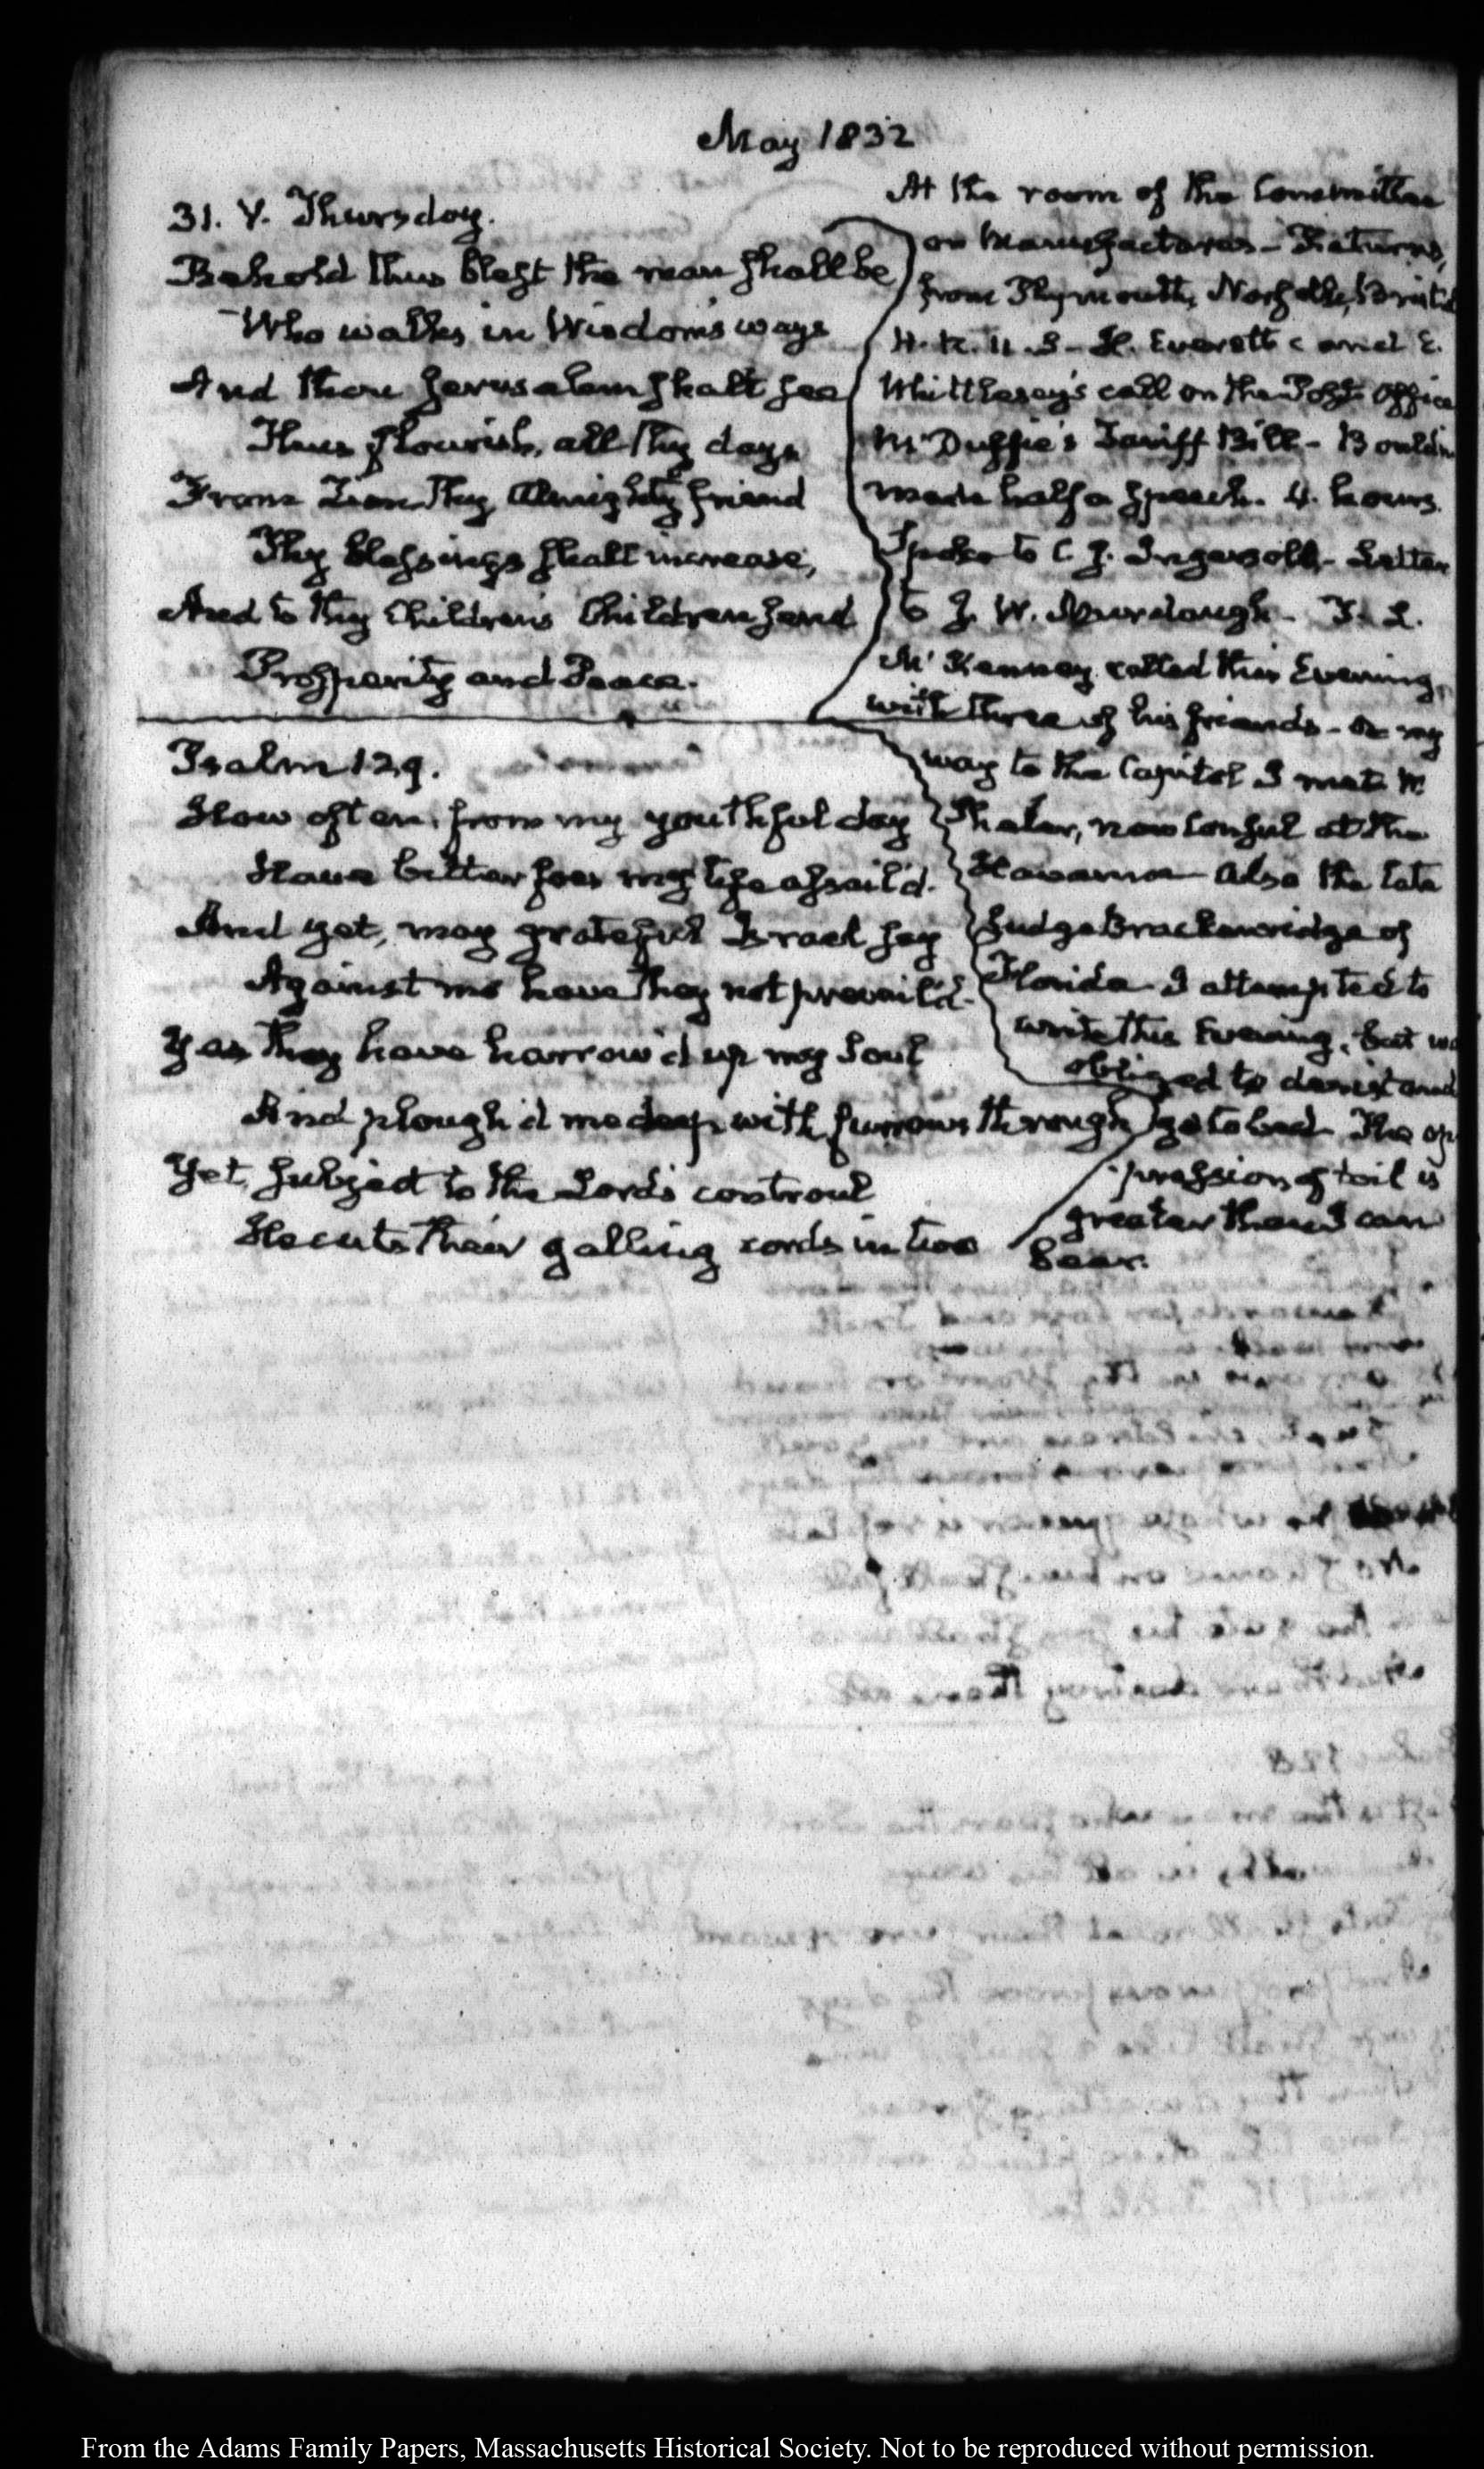 May 1832
31. V. Thursday.
Behold thus blest the man shall be
Who walks in Wisdom's ways
And thou Jerusalem shalt see
Thus flourish, all thy days
From Zion thy Almighty friend
Thy blessings shall increase,
And to thy Children's Children send
Prosperity and Peace.
Psalm 129.
How often, from my youthful day
Have bitter foes my life assail'd.
And yet, may grateful Israel say
Against me have they not prevail'd.
Yea they have harrow'd up my Soul
And plough'd me deep with furrows through
Yet, subject to the Lord's controul
He cuts their galling cords in two
At the room of the Committee
on Manufactures - Returns,
from Plymouth, Norfolk, Bristol
H. R. U. S - H. Everett's and E.
Whittlesey's call on the Post Office
McDuffie's Tariff Bill - Bouldin
made half a Speech. 4. hours.
Spoke to C. J. Ingersoll - Letter
to J. W. Murdaugh - T. L.
McKenney called this Evening,
with three of his friends - On my
way to the Capitol I met Mr
Shaler, now Consul at the
Havanna also the late
Judge Brackenridge of
Florida I attempted to
write this Evening, but was
obliged to desist and
go to bed. The op
pression of toil is
greater than I can
bear.
From the Adams Family Papers, Massachusetts Historical Society. Not to be reproduced without permission.